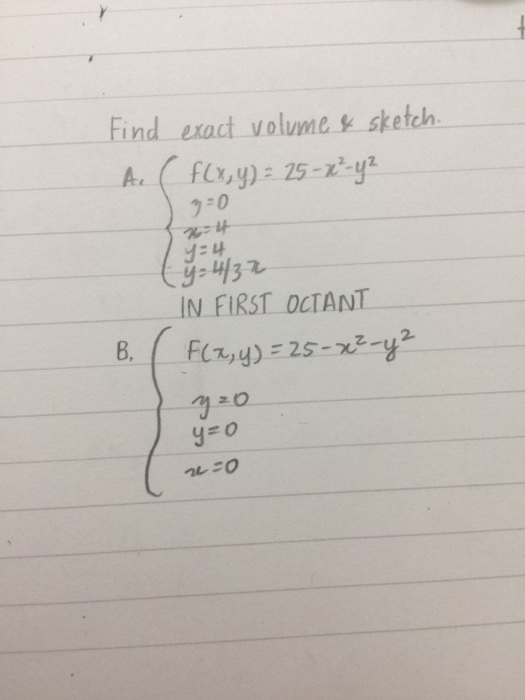 Find exact volume & sketch.
A. f(x,y) = 25-x²-y²
z=0
x=4
y=4
y=4/3 x
IN FIRST OCTANT
B. F(x,y) = 25-x²-y²
z=0
y=0
x=0